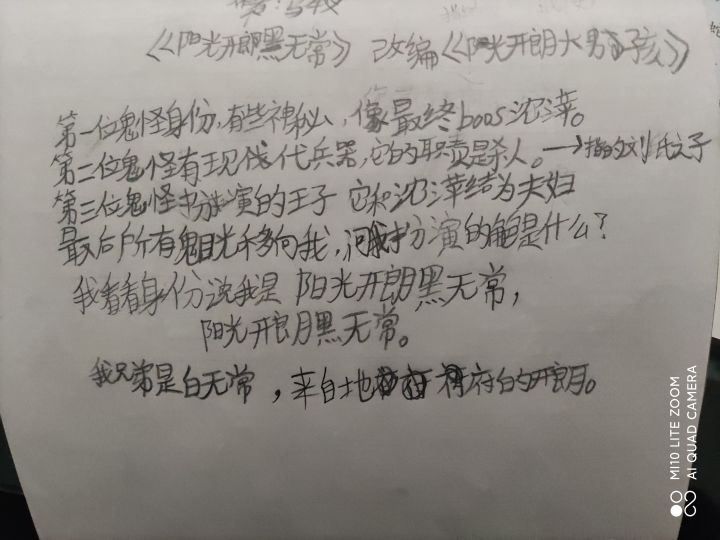 《阳光开朗黑无常》 改编《阳光开朗大男孩》
第一位鬼怪身份,有些神秘,像最终boos沈莘。
第二位鬼怪有现代兵器,它的职责是杀人。→指的刘氏之子
第三位鬼怪扮演的王子 它和沈莘结为夫妇
最后所有鬼目光移向我,问我扮演的角色是什么?
我看看身份说我是 阳光开朗黑无常,
阳光开朗黑无常。
我兄弟是白无常,来自地府的开朗。
MI10 LITE ZOOM
AI QUAD CAMERA